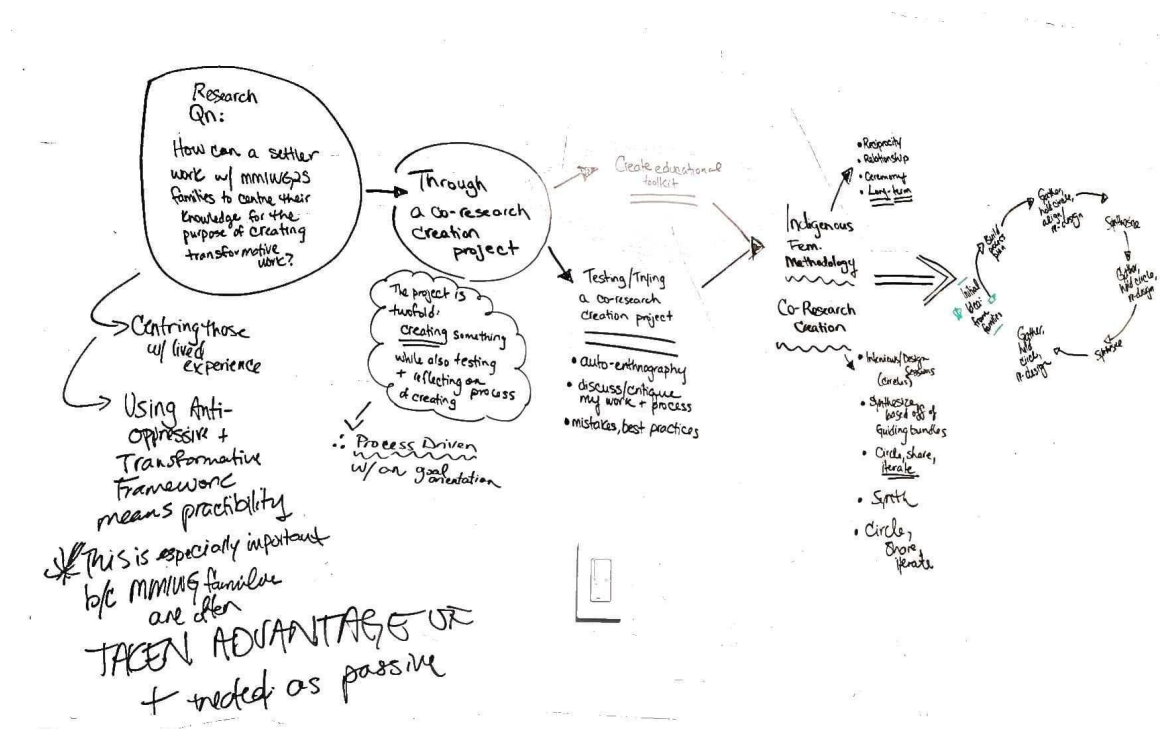 Research
Qn:
How can a settler
work w/ MMIWG2S
families to centre their
knowledge for the
purpose of creating
transformative
work?
Centring those
w/ lived
experience
Using Anti-
oppressive +
Transformative
Framework
means practibility
This is especially important
b/c MMIWG families
are often
TAKEN ADVANTAGE OF
+ treated as passive
Through
a co-research
creation
project
The project is
twofold:
creating something
while also testing
+ reflecting on process
of creating
∴ Process Driven
w/ an goal
orientation
Create educational
toolkit
Testing/Trying
a co-research
creation project
• auto-enthnography
• discuss/critique
my work + process
• mistakes, best practices
Indigenous
Fem.
Methodology
Co-Research
Creation
• Reciprocity
• Relationship
• Ceremony
• Long-term
• Interviews/Design
Sessions
(circles)
• Synthesize
based off of
Guiding bundles
• Circle, share,
iterate
• Synth
• Circle,
Share
iterate
Initial
Ideas
from
families
Build
Gather,
hold circle,
align
re-design
Synthesize
Gather,
hold circle,
re-design
Synthesize
Gather,
hold
circle,
re-design